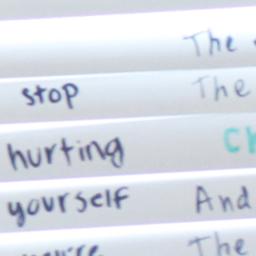 The
stop The
hurting
yourself And
you're The